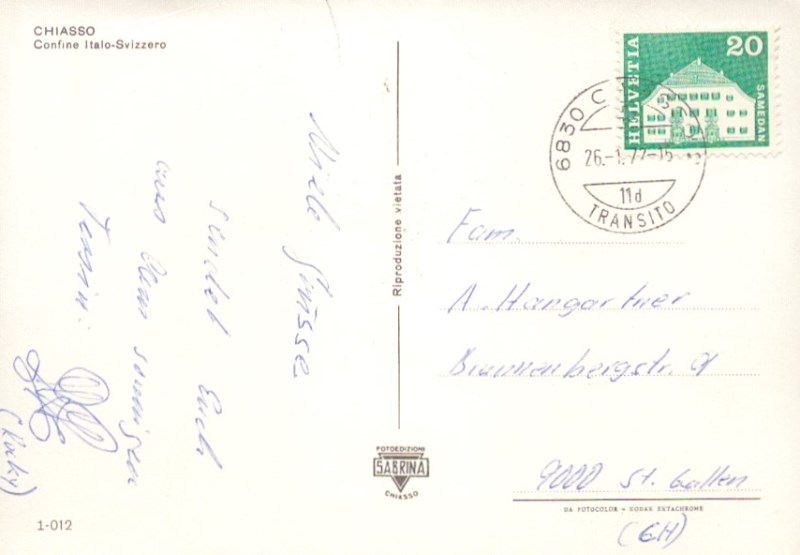 CHIASSO
Confine Italo-Svizzero
Viele Grüsse
sendet Euch
aus dem sonnigen
Tessin:
(Rocky)
1-012
Riproduzione vietata
FOTOEDIZIONI
SABRINA
CHIASSO
HELVETIA
20
SAMEDAN
6830 CHIASSO
26.-1.72-15
11d
TRANSITO
Fam.
A. Hangartner
9000 St. Gallen
DA FOTOCOLOR - KODAK EKTACHROME
(CH)